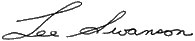 Lee Swanson